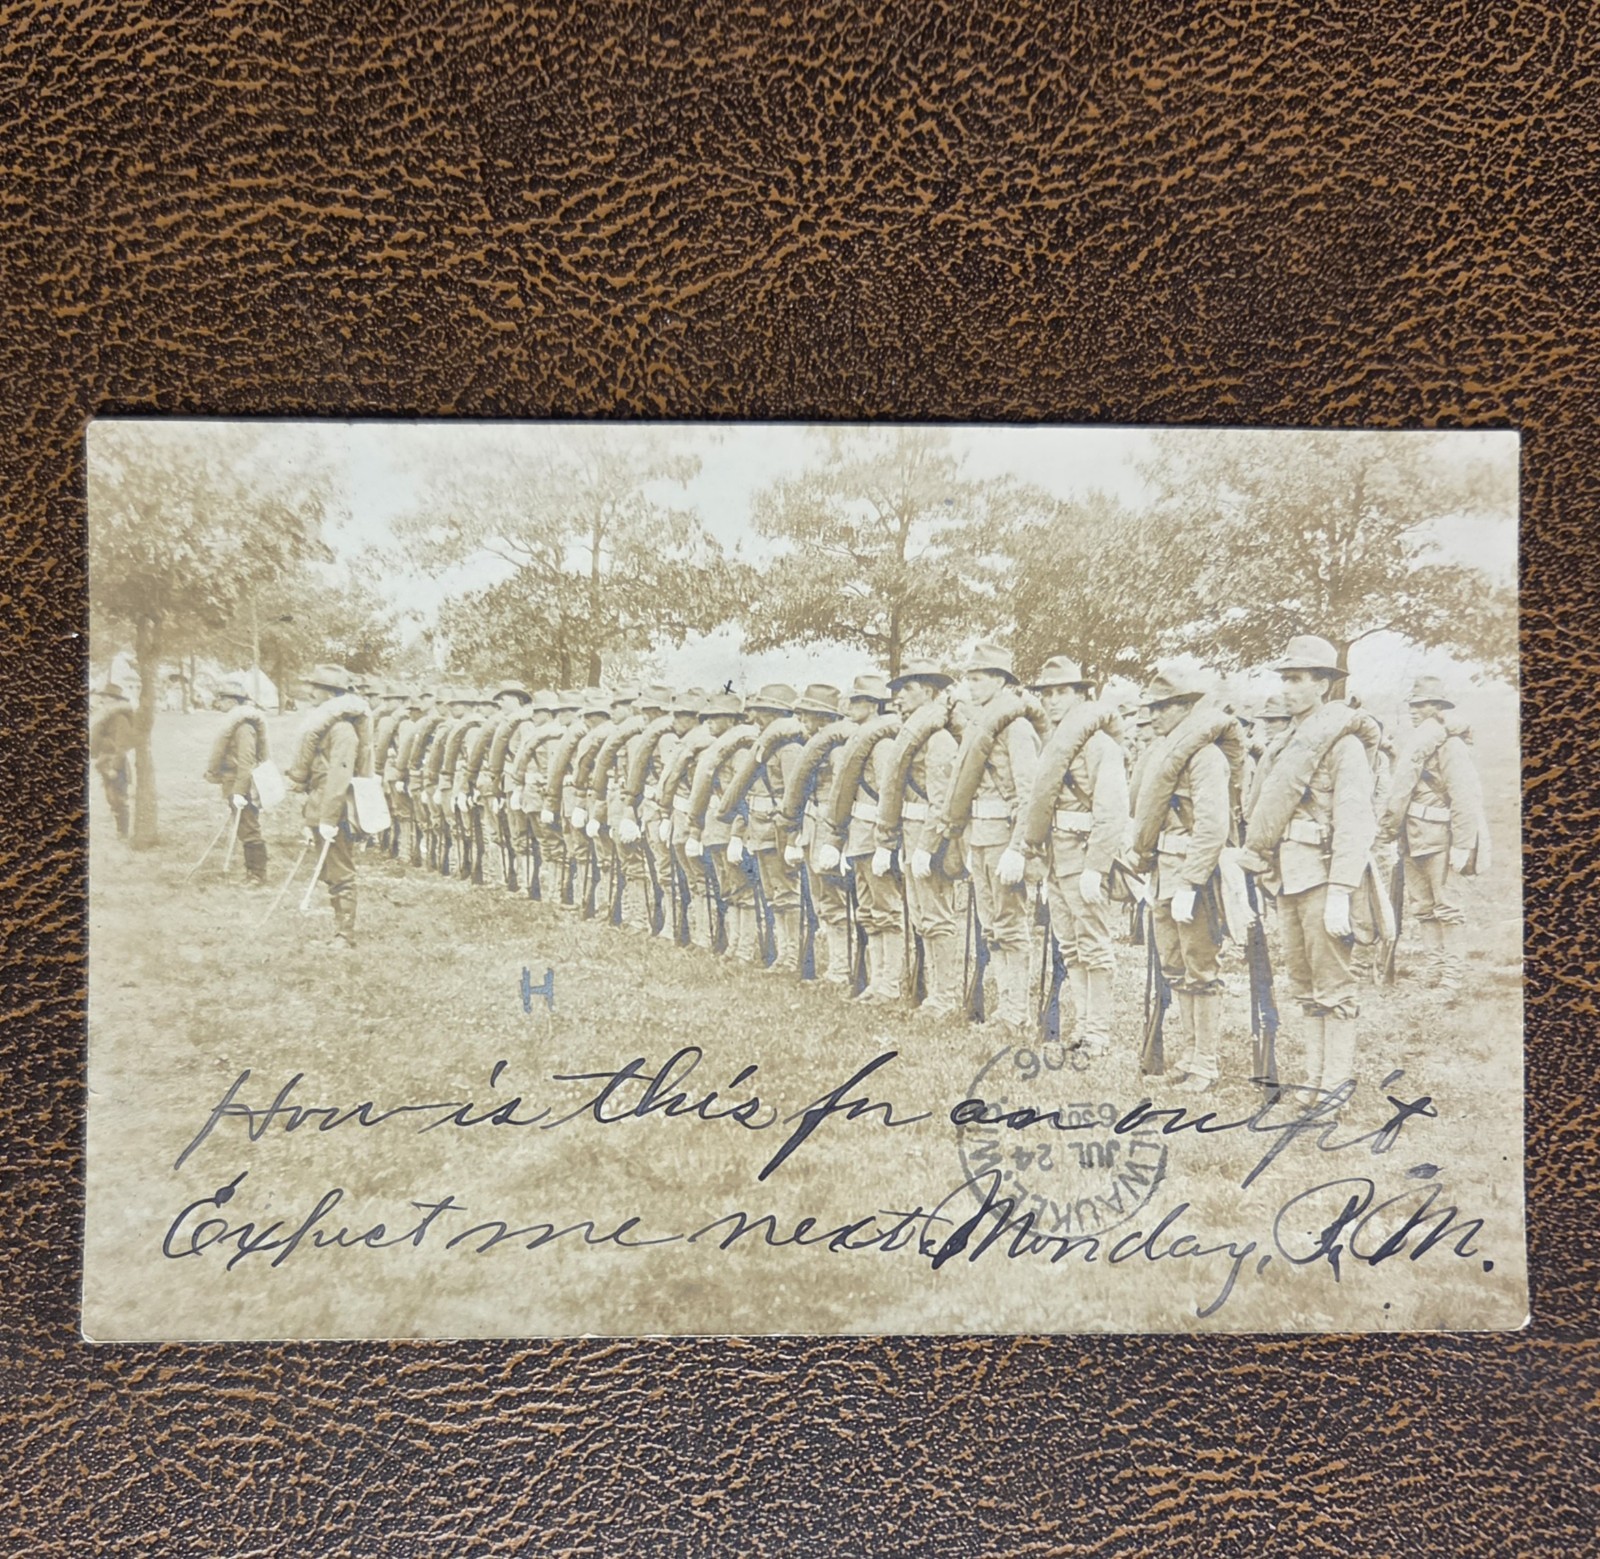 H
How is this for an outfit
Expect me next Monday, P.M.
MILWAUKEE, WIS.
JUL 24
630
906